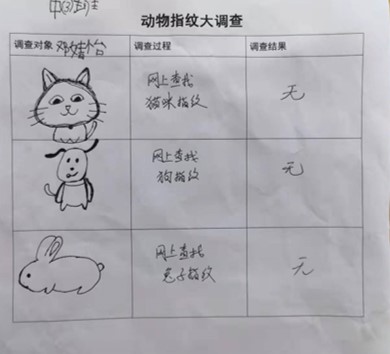 中(3)班
动物指纹大调查
调查对象
调查过程
调查结果
网上查找
猫咪指纹
无
网上查找
狗指纹
无
网上查找
兔子指纹
无